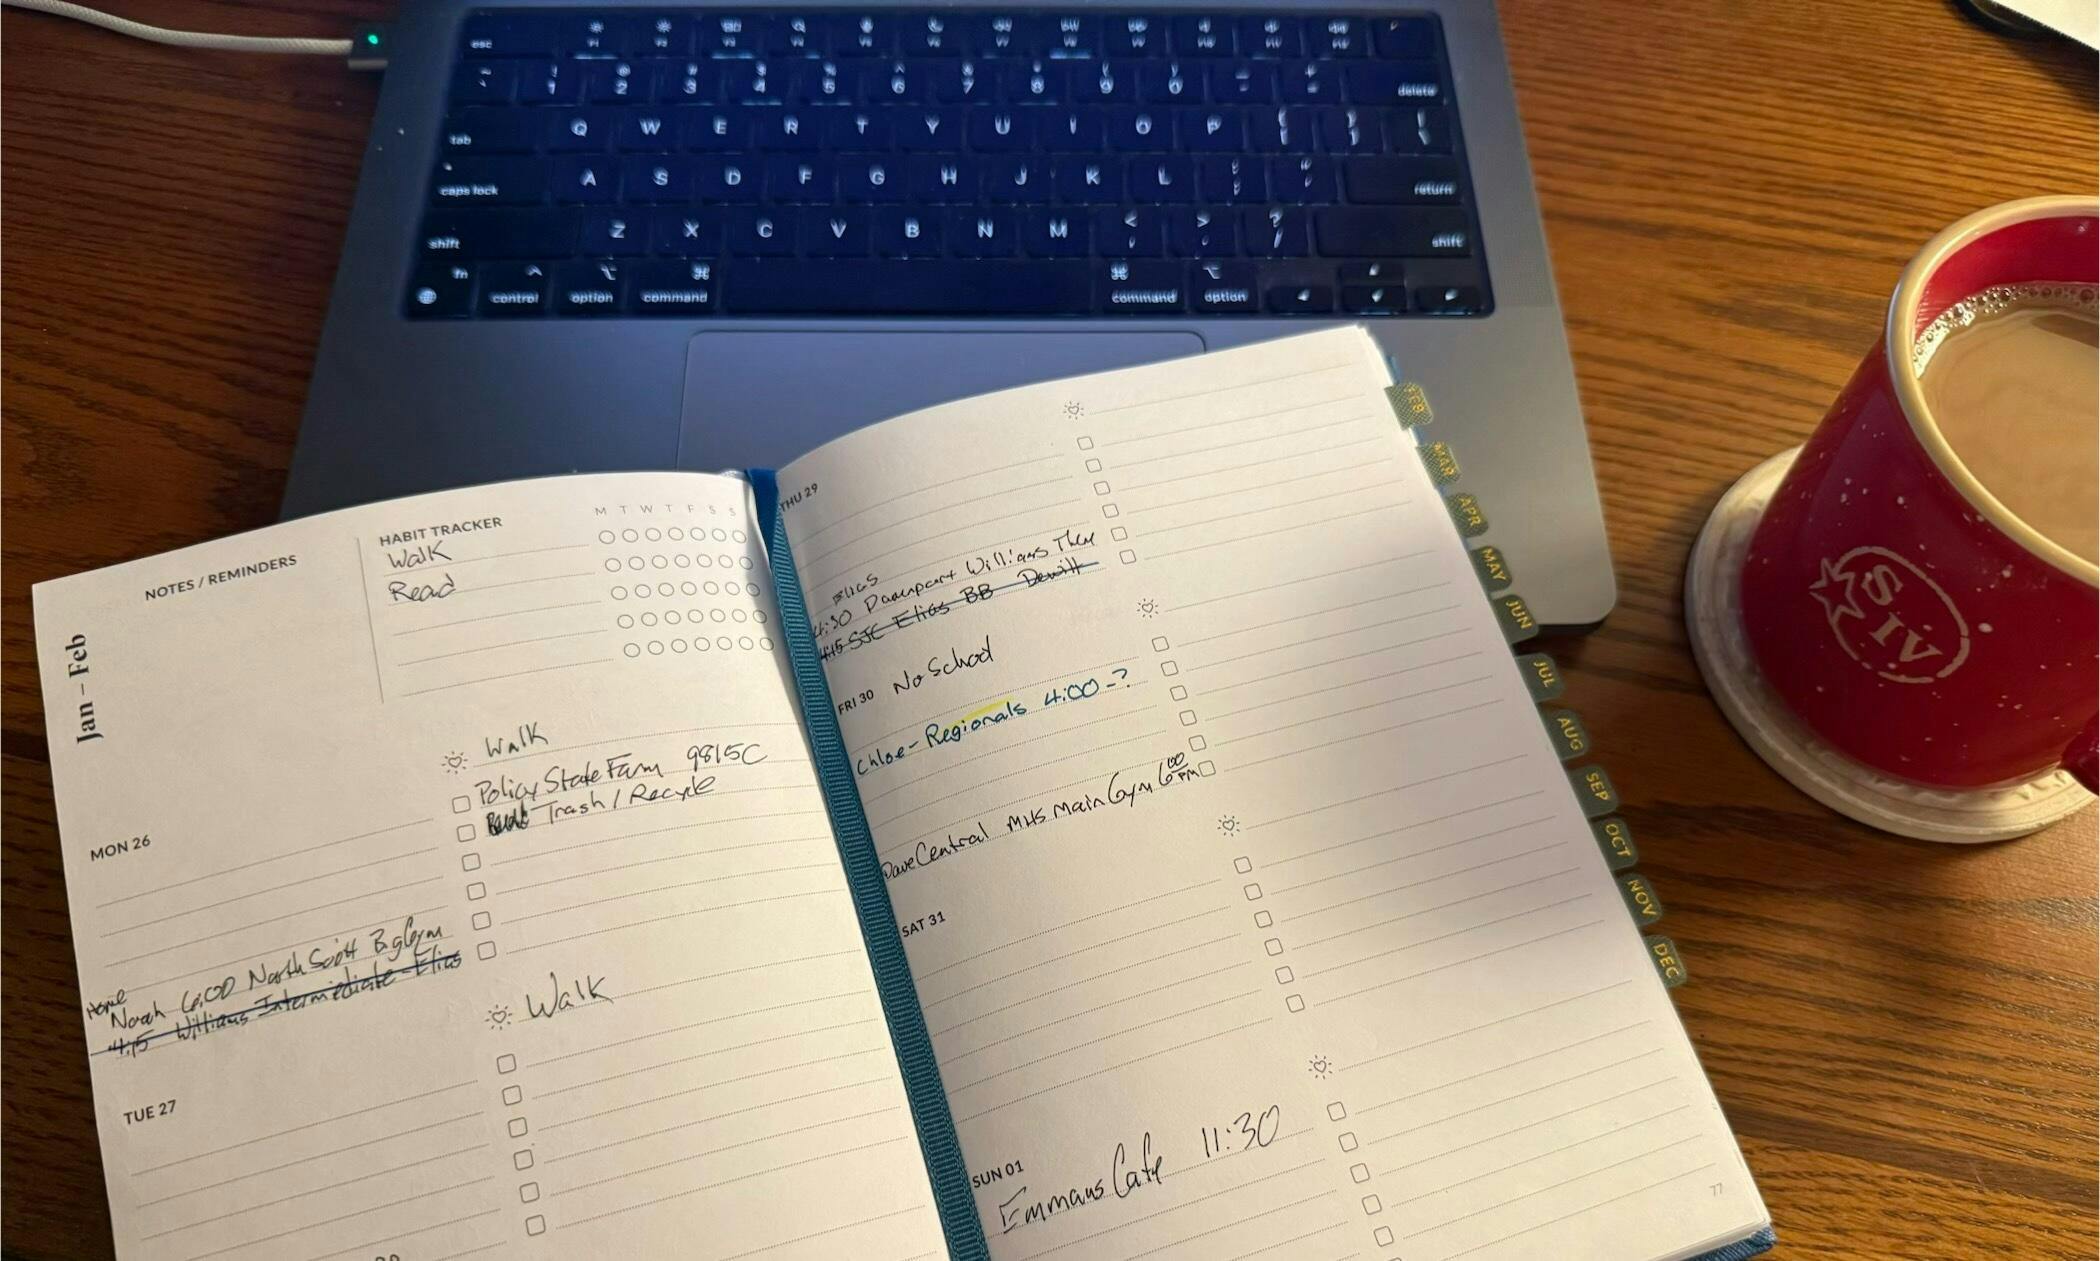 esc
F1 F2 F3 F4 F5 F6 F7 F8 F9 F10 F11 F12
~ ! @ # $ % ^ & * ( ) _ +
` 1 2 3 4 5 6 7 8 9 0 - = delete
tab Q W E R T Y U I O P { } |
[ ] \
caps lock A S D F G H J K L : "
; ' return
shift Z X C V B N M < > ? shift
, . /
fn ^ ⌥ ⌘ ⌘ ⌥
control option command command option
NOTES / REMINDERS
HABIT TRACKER
M T W T F S S
Walk
Read
Jan – Feb
Walk
Policy State Farm 9815C
Trash / Recycle
MON 26
Home
Norah 6:00 North Scott Big Gym
4:15 Williams Intermediate - Elias
Walk
TUE 27
THU 29
Elias
4:30 Davenport Williams There
4:15 SJC Elias BB Dewitt
FRI 30 No School
Chloe - Regionals 4:00 - ?
Dave Central MHS Main Gym 6:00 PM
SAT 31
SUN 01
Emmaus Cafe 11:30
77
FEB
MAR
APR
MAY
JUN
JUL
AUG
SEP
OCT
NOV
DEC
SIV